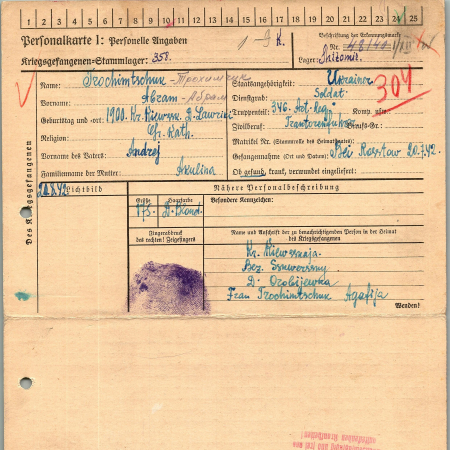 1 2 3 4 5 6 7 8 9 10 11 12 13 14 15 16 17 18 19 20 21 22 23 24 25
Personalkarte I: Personelle Angaben
Kriegsgefangenen-Stammlager: 358.
Beschriftung der Erkennungsmarke
Nr.
Lager: Shitomir.
Des Kriegsgefangenen
Name: Trochimtschuk - Трохимчук
Vorname: Abram - Абрам
Geburtstag und -ort: 1900. Kr. Kiewssk.
Religion: Gr. Kath.
Vorname des Vaters: Andrej
Familienname der Mutter: Akulina
Staatsangehörigkeit: Ukrainer
Dienstgrad: Soldat.
Truppenteil: 346. Komp. usw.:
Zivilberuf: Berufs-Gr.:
Matrikel Nr. (Stammrolle des Heimatstaates):
Gefangennahme (Ort und Datum): Bei Rostow 20.7.42.
Ob gesund, krank, verwundet eingeliefert:
307
Lichtbild
Nähere Personalbeschreibung
Größe
Haarfarbe
Besondere Kennzeichen:
173. D. Blond.
Fingerabdruck
des rechten! Zeigefingers
Name und Anschrift der zu benachrichtigenden Person in der Heimat
des Kriegsgefangenen
Kr. Kiewskaja.
Bez.
D. Ozobijewka
Frau Trochimtschuk Agafija
Wenden!